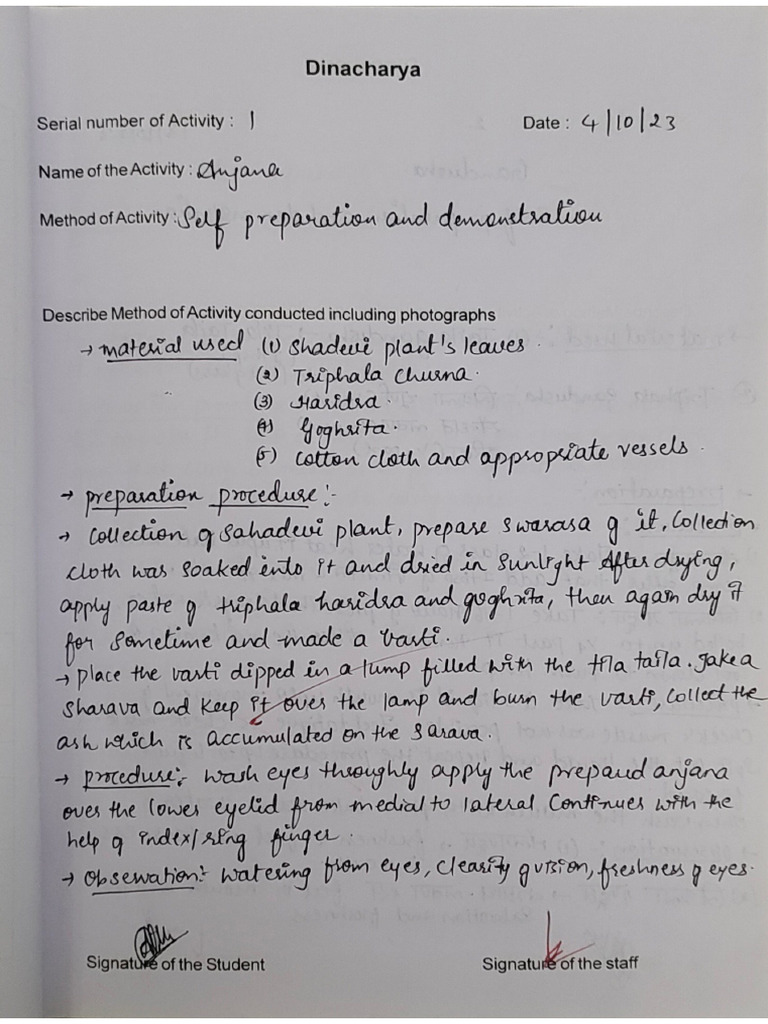 Dinacharya
Serial number of Activity : 1 Date : 4/10/23
Name of the Activity : Anjana
Method of Activity : Self preparation and demonstration
Describe Method of Activity conducted including photographs
→ material used (1) Shadevi plant's leaves.
(2) Triphala Churna.
(3) Haridra.
(4) Goghrita.
(5) Cotton cloth and appropriate vessels.
→ preparation procedure:-
→ Collection of Sahadevi plant, prepare swarasa of it, Collection
cloth was soaked into it and dried in sunlight After drying,
apply paste of triphala haridra and goghrita, then again dry it
for sometime and made a varti.
→ place the varti dipped in a lump filled with the tila taila. Take a
Sharava and keep it over the lamp and burn the varti, collect the
ash which is accumulated on the sarava.
→ procedure:- wash eyes throughly apply the prepaud anjana
over the lower eyelid from medial to lateral Continues with the
help of index/ring finger.
→ Observation:- watering from eyes, clearity of vision, freshness of eyes.
Signature of the Student Signature of the staff